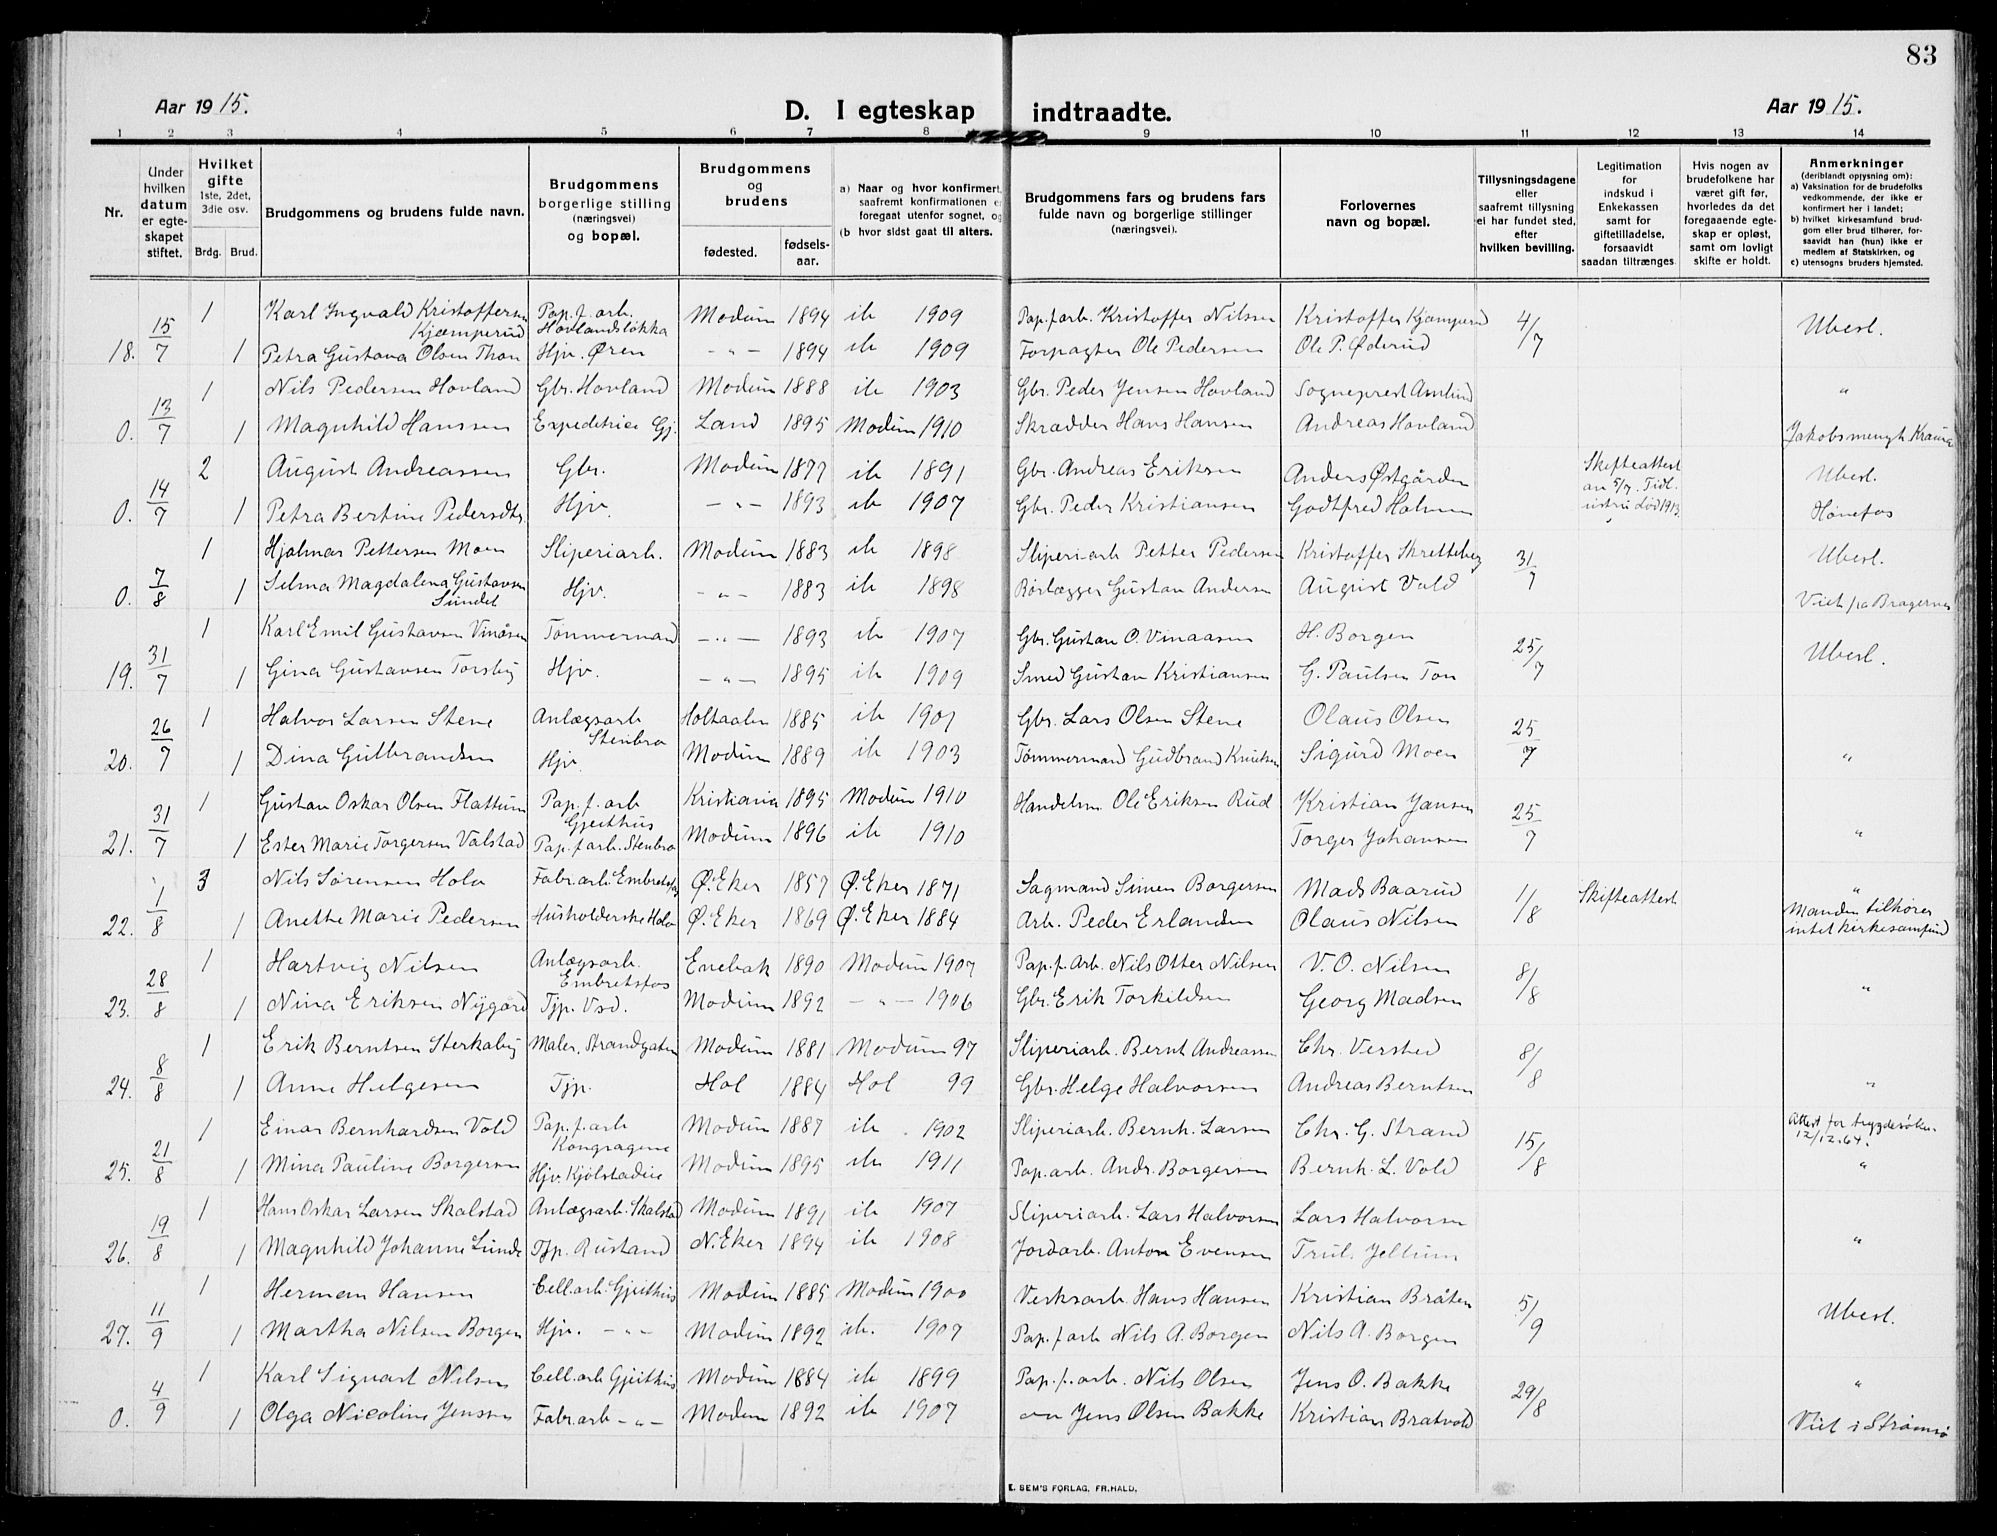 83
Aar 1915.
D. I egteskap indtraadte.
Aar 1915.
1 2 3 4 5 6 7 8 9 10 11 12 13 14
Nr.
Under hvilken datum er egteskapet stiftet.
Hvilket gifte 1ste, 2det, 3die osv. Brdg. Brud.
Brudgommens og brudens fulde navn.
Brudgommens borgerlige stilling (næringsvei) og bopæl.
Brudgommens og brudens fødested. fødselsaar.
a) Naar og hvor konfirmert, saafremt konfirmationen er foregaat utenfor sognet, og
(b hvor sidst gaat til alters.
Brudgommens fars og brudens fars fulde navn og borgerlige stillinger (næringsvei).
Forlovernes navn og bopæl.
Tillysningsdagene eller saafremt tillysning ei har fundet sted, efter hvilken bevilling.
Legitimation for indskud i Enkekassen samt for giftetilladelse, forsaavidt saadan tiltrænges
Hvis nogen av brudefolkene har været gift før, hvorledes da det foregaaende egteskap er opløst, samt om lovligt skifte er holdt.
Anmerkninger (deriblandt opysning om): a) Vaksination for de brudefolks vedkommende, der ikke er konfirmert her i landet; b) hvilket kirkesamfund brudgom eller brud tilhører, forsaavidt han (hun) ikke er medlem af Statskirken, og c) utensogns bruders hjemsted.
1 Karl Ingvald Kristoffersen Kjæmperud Pap.f.arb. Hovlandsløkka Modum 1894 ib 1909 Pap.f.arb. Kristoffer Nilsen Kristoffer Kjæmperud 4/7 Ubesl.
18. 15/7 1 Petra Gustava Olsen Thon Hjv. Øren -"- 1894 ib 1909 Forpagter Ole Pedersen Ole P. Øderud
1 Nils Pedersen Hovland Gbr. Hovland Modum 1888 ib 1903 Gbr. Peder Jensen Hovland Sogneprest Amlund "
0. 13/7 1 Magnhild Hanssen Expeditrice Gj. Land 1895 Modum 1910 Skrædder Hans Hansen Andreas Hovland Jakobsmengh. Krania
2 August Andreassen Gbr. Modum 1877 ib 1891 Gbr. Andreas Eriksen Anders Østgården Skifteattest av 5/7. Tidl. ustru død 1913. Ubesl.
0. 14/7 1 Petra Bertine Pedersdtr. Hjv. -"- 1893 ib 1907 Gbr. Peder Kristiansen Godtfred Halvorsen Hønefos
1 Hjalmar Pettersen Moen Sliperiarb. Modum 1883 ib 1898 Sliperiarb Petter Pedersen Kristoffer Skretteberg 31/7 Ubesl.
0. 7/8 1 Selma Magdalena Gustavsen Sundet Hjv. -"- 1883 ib 1898 Rørlægger Gustav Andersen August Vold Viet på Bragernes
1 Karl Emil Gustavsen Vinåsen Tømmermand -"- 1893 ib 1907 Gbr. Gustav O. Vinaasen H. Borgen 25/7 Ubesl.
19. 31/7 1 Gina Gustavsen Torsby Hjv. -"- 1895 ib 1909 Smed Gustav Kristiansen G. Paulsen Ton
1 Halvor Larsen Stene Anlægsarb Stenbro Holtaalen 1885 ib 1901 Gbr. Lars Olsen Stene Olaus Olsen 25/7
20. 26/7 1 Dina Gulbrandsen Hjv. Modum 1889 ib 1903 Tømmermand Gudbrand Knutsen Sigurd Moen "
1 Gustav Oskar Olsen Flattum Pap.f.arb Gjeithus Kristiania 1895 Modum 1910 Handelsm. Ole Eriksen Rud Kristian Jansen 25/7
21. 31/7 1 Ester Marie Torgersen Valstad Pap.f.arb. Stenbro Modum 1896 ib 1910 Torger Johansen "
3 Nils Sørensen Holo Fabr.arb. Embretsfos Ø. Eker 1857 Ø. Eker 1871 Sagmand Simen Borgersen Mads Baarud 1/8 Skifteattest "
22. 1/8 1 Anette Marie Pedersen Husholderske Holo Ø. Eker 1869 Ø. Eker 1884 Arb. Peder Erlandsen Olaus Nilsen Manden tilhører intet kirkesamfund
1 Hartvig Nilsen Anlægsarb. Embretsfos Enebak 1890 Modum 1907 Pap.f.Arb. Nils Otter Nilsen V. O. Nilsen 8/8
23. 28/8 1 Nina Eriksen Nygård Tjp. Vsd. Modum 1892 -"- 1906 Gbr. Erik Torkildsen Georg Madsen "
1 Erik Berntsen Sterkaby Maler, Strandgaten Modum 1881 Modum 97 Sliperiarb. Bernt Andreassen Chr. Versted 8/8
24. 8/8 1 Anne Helgesen Tjp. Hol 1884 Hol 99 Gbr. Helge Halvorsen Andreas Berntsen "
1 Einar Bernhardsen Vold Pap.f.arb Kongragene Modum 1887 ib 1902 Sliperiarb. Bernh. Larsen Chr. G. Strand 15/8 Attest for trygdesøkn. 12/12.64.
25. 21/8 1 Mina Pauline Borgersen Hjv. Kjølstadeie Modum 1895 ib 1911 Pap.arb. Andr. Borgersen Bernh. L. Vold "
1 Hans Oskar Larsen Skalstad Anlægsarb. Skalstad Modum 1891 ib 1907 Sliperiarb. Lars Halvorsen Lars Halvorsen
26. 19/8 1 Magnhild Johanne Lunde Tjp. Rustand N. Eker 1894 ib 1908 Jordarb. Anton Evensen Trul. Jellum "
1 Herman Hansen Cell.arb. Gjeithus Modum 1885 Modum 1900 Verksarb. Hans Hansen Kristian Bråten 5/9 Ubesl.
27. 11/9 1 Martha Nilsen Borgen Hjv. -"- Modum 1892 ib. 1907 Pap.f.arb Nils A. Borgen Nils A. Borgen
1 Karl Sigvart Nilsen Cell.arb Gjeithus Modum 1884 ib 1899 Pap.f.arb. Nils Olsen Jens O. Bakke 29/8 "
0. 4/9 1 Olga Nicoline Jensen Fabr.arb -"- Modum 1892 ib 1907 Jens Olsen Bakke Kristian Bratvold Viet i Strømsø
E. SEM'S FORLAG, FR.HALD.